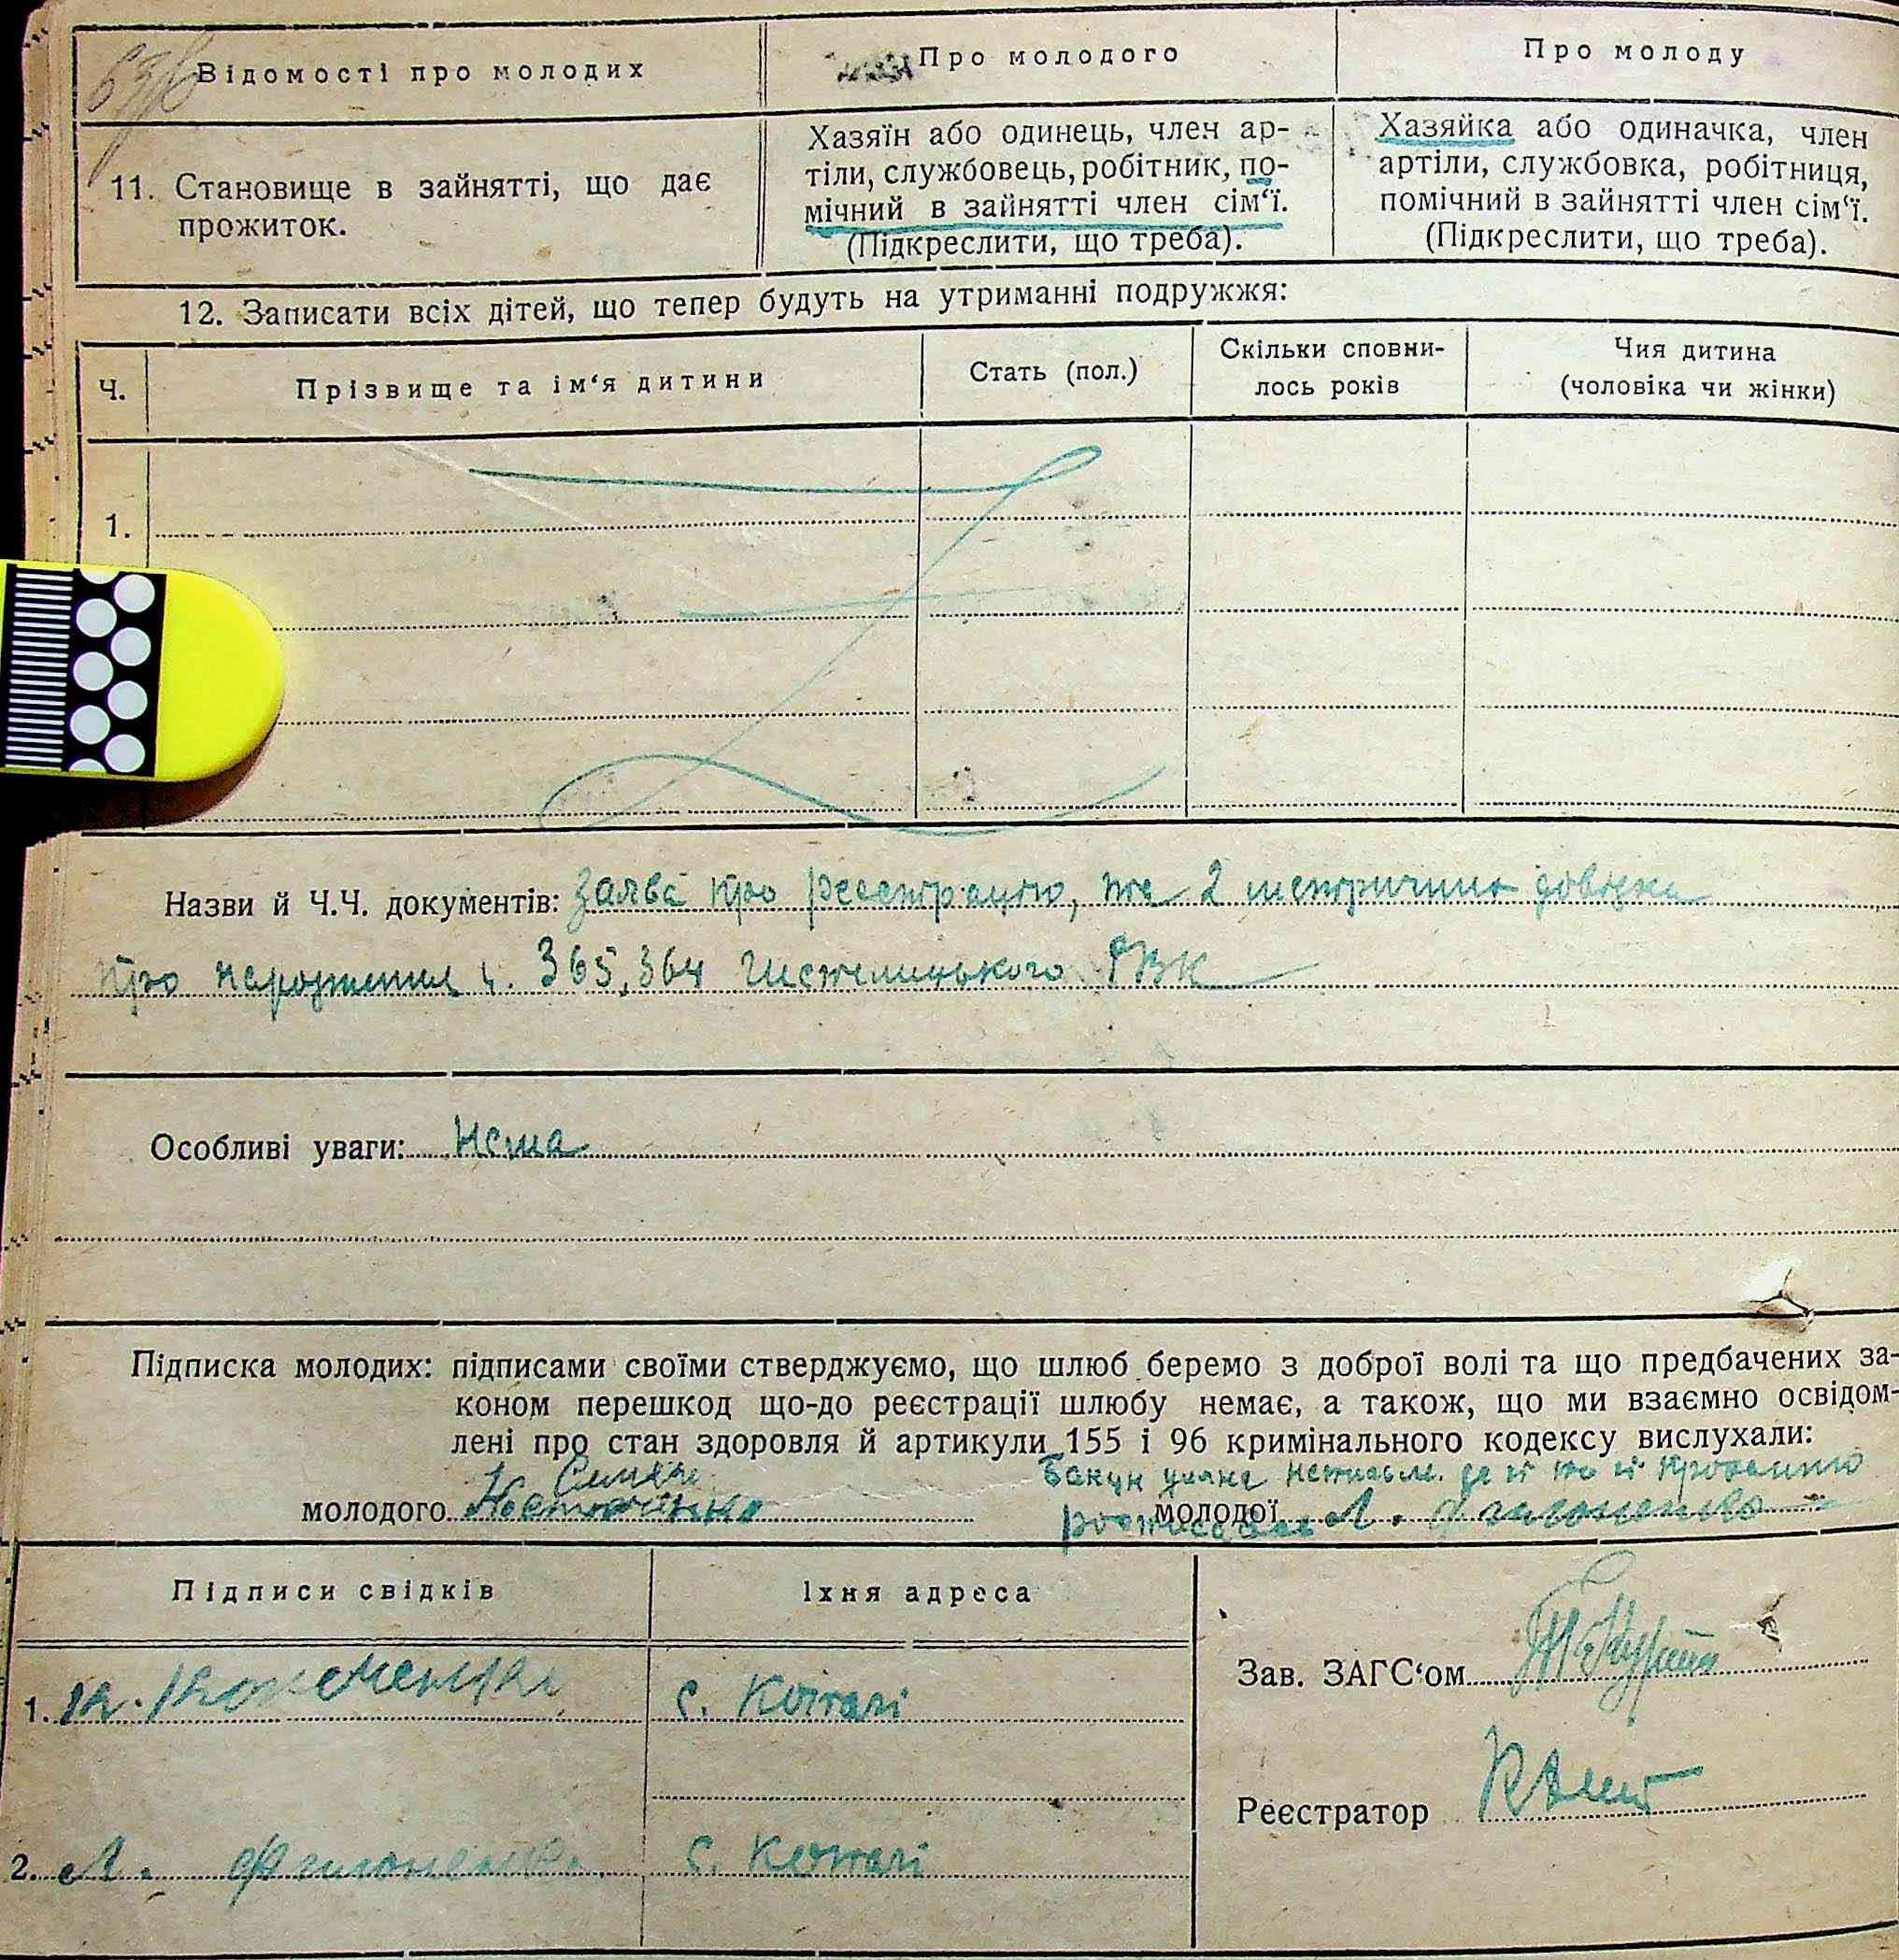 Відомості про молодих
Про молодого
Про молоду
11. Становище в зайнятті, що дає
прожиток.
Хазяїн або одинець, член ар-
тіли, службовець, робітник, по-
мічний в зайнятті член сім‘ї.
(Підкреслити, що треба).
Хазяйка або одиначка, член
артіли, службовка, робітниця,
помічний в зайнятті член сім‘ї.
(Підкреслити, що треба).
12. Записати всіх дітей, що тепер будуть на утриманні подружжя:
Ч.
Прізвище та ім‘я дитини
Стать (пол.)
Скільки сповни-
лось років
Чия дитина
(чоловіка чи жінки)
1.
Назви й Ч.Ч. документів: Заява про реєстрацію, та 2 метричних довідки
про народження ч. 365, 364 РВК
Особливі уваги: Нема
Підписка молодих: підписами своїми стверджуємо, що шлюб беремо з доброї волі та що предбачених за-
коном перешкод що-до реєстрації шлюбу немає, а також, що ми взаємно освідом-
лені про стан здоровля й артикули 155 і 96 кримінального кодексу вислухали:
молодого
молодої
Підписи свідків
Їхня адреса
Зав. ЗАГС‘ом
1.
с.
Реєстратор
2.
с.